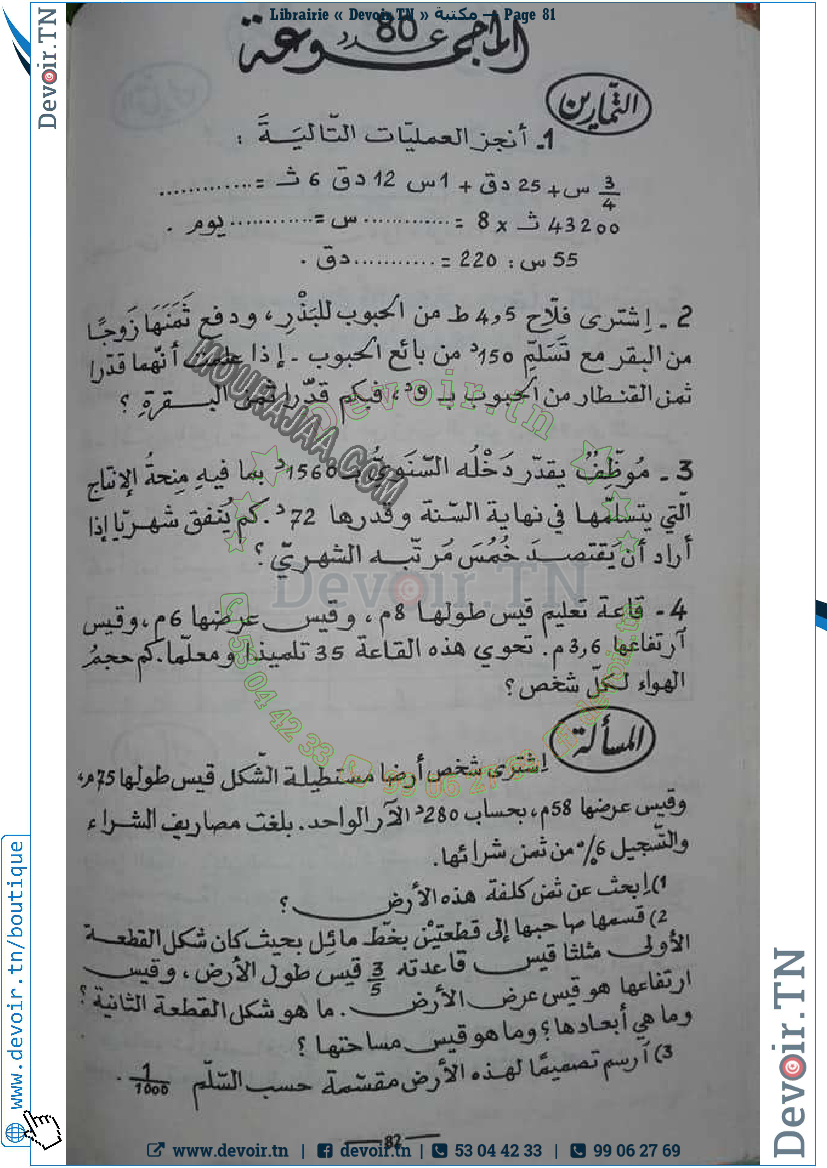 Librairie « Devoir.TN » مكتبة — Page 81
المجموعة عدد 80
التمارين
1ـ أنجز العمليّات التّاليَةَ :
3/4 س + 25 دق + 1س 12 دق 6 ث = ............
43200 ث × 8 = ............ س = ............ يوم .
55 س : 220 = ........... دق .
2 ـ اِشترى فلّاح 4,5 ط من الحبوب للبَذْرِ، ودفع ثَمَنَهَا زَوجًا
من البقر مع تَسَلُّمِ 150د من بائع الحبوب ـ إذا علمت أنّهما قدّرا
ثمن القنطار من الحبوب بـ 9د، فبكم قدّرا ثمن البـقـرةِ ؟
3 ـ مُوظّفٌ يقدّر دَخْلُه السّنَويُّ بـ 1568د بما فيه مِنحةُ الإنتاج
الّتي يتسلّمها في نهاية السّنة وقدرها 72د. كم يُنفق شهريّا إذا
أراد أن يَقتصدَ خُمُسَ مُرتّبه الشهريّ ؟
4 ـ قاعة تعليم قيس طولها 8م، وقيس عرضها 6م، وقيس
اَرتفاعها 3,6 م. تحوي هذه القاعة 35 تلميذا ومعلّما. كم حجمُ
الهواء لكلّ شخص ؟
المسألة
اِشترى شخص أرضا مستطيلة الشّكل قيس طولها 75م،
وقيس عرضها 58م، بحساب 280د الآر الواحد. بلغت مصاريف الشراء
والتّسجيل 6% من ثمن شرائها.
1) اِبحث عن ثمن كلفة هذه الأرض ؟
2) قسمها صاحبها إلى قطعتيْن بخطّ مائل بحيث كان شكل القطعة
الأولى مثلثا قيس قاعدته 3/5 قيس طول الأرض، وقيس
ارتفاعها هو قيس عرض الأرض . ما هو شكل القطعة الثانية ؟
وما هي أبعادها ؟ وما هو قيس مساحتها ؟
3) اُرسم تصميمًا لهذه الأرض مقسّمة حسب السّلّم 1/1000 .
82
MOURAJAA.COM
Devoir.tn
Devoir.TN
53 04 42 33
99 06 27 69
Devoir.tn
www.devoir.tn | devoir.tn | 53 04 42 33 | 99 06 27 69
Devoir.TN
www.devoir.tn/boutique
Devoir.TN